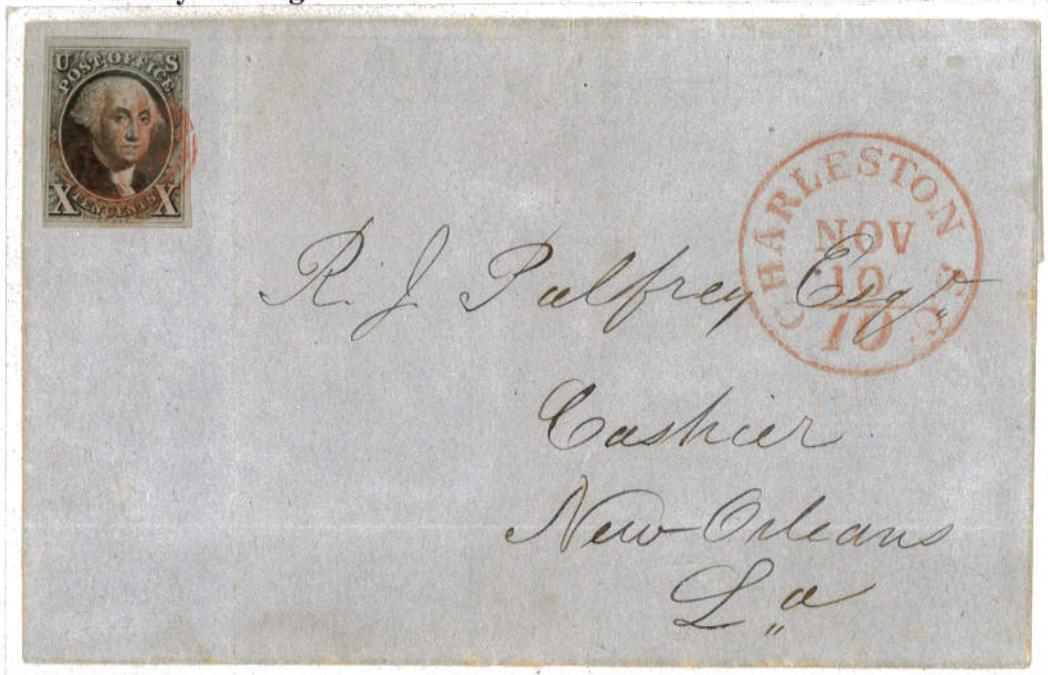 U S
POST OFFICE
X TEN CENTS X
CHARLESTON S.C.
NOV
10
10
R. J. Palfrey Esqr.
Cashier
New Orleans
La